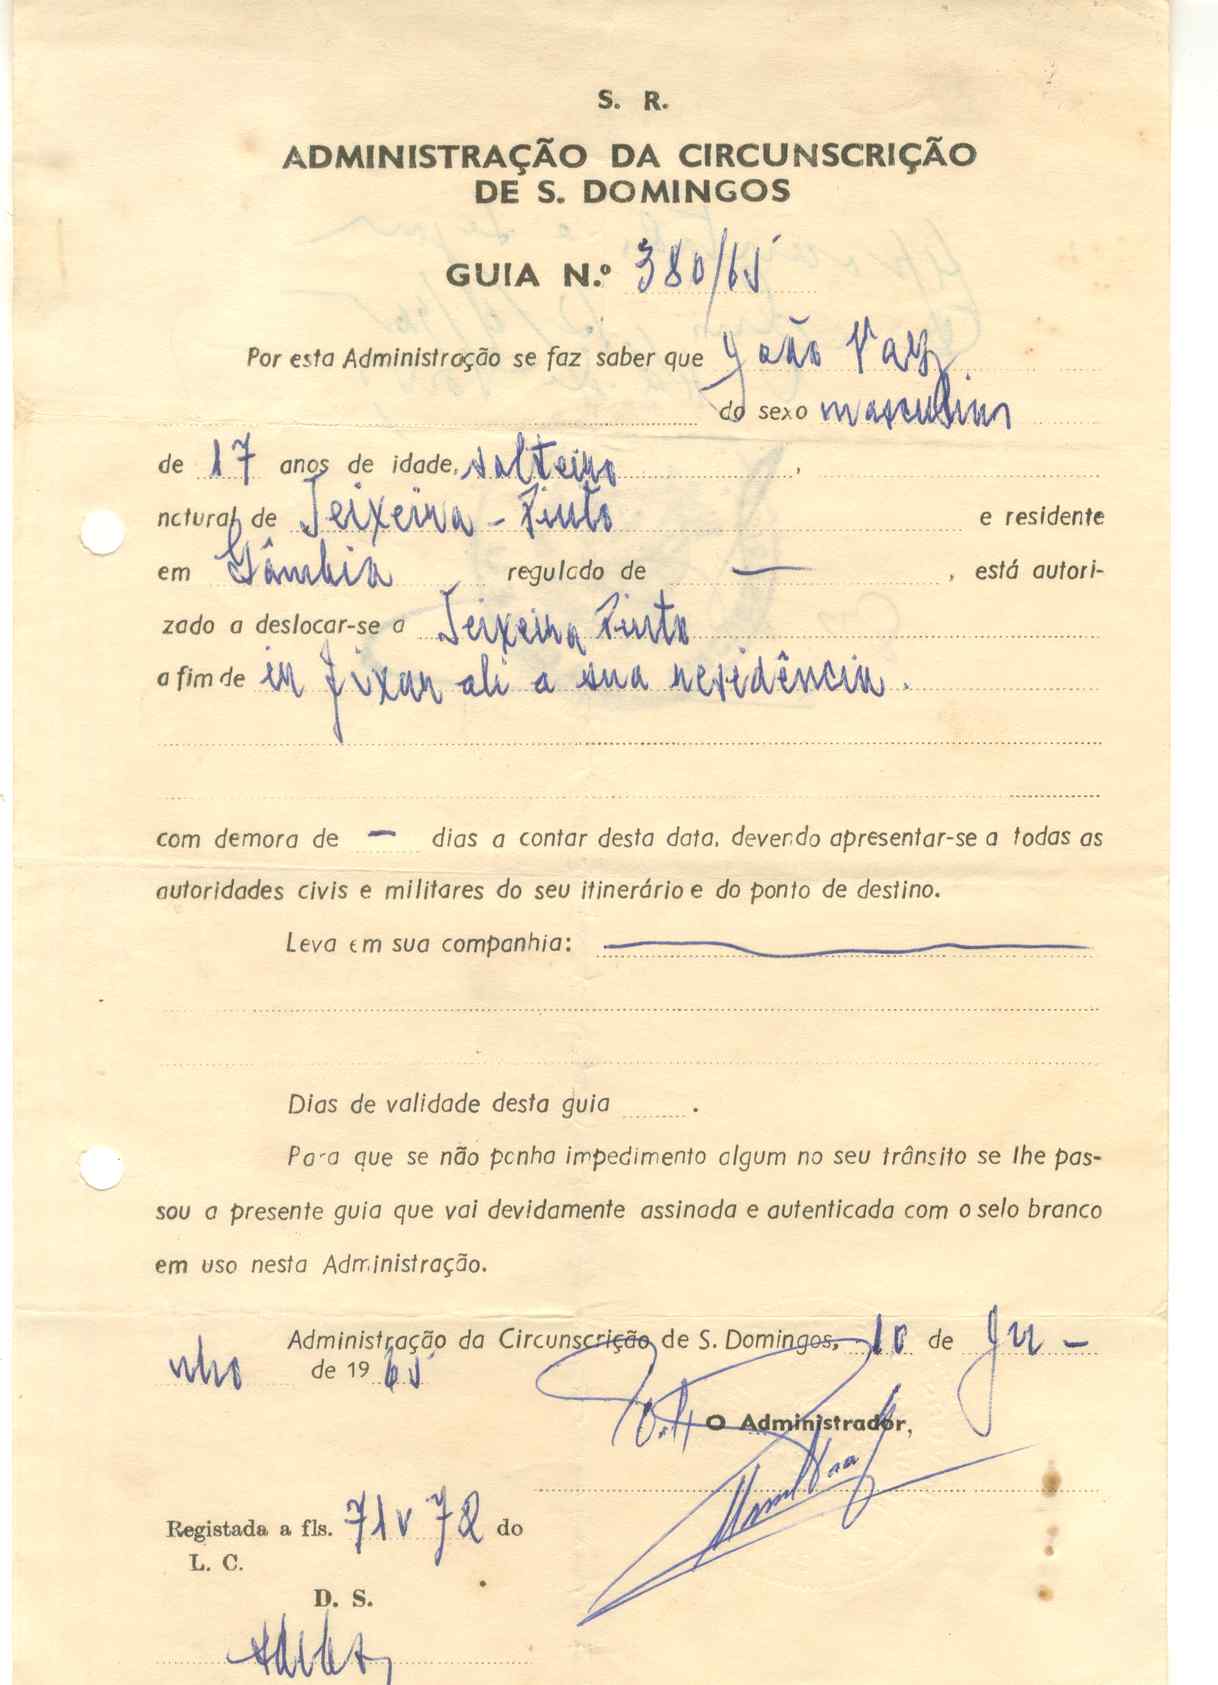 S. R.
ADMINISTRAÇÃO DA CIRCUNSCRIÇÃO
DE S. DOMINGOS
GUIA N.º 380/65
Por esta Administração se faz saber que João Vaz
do sexo masculino
de 17 anos de idade, solteiro,
natural de Teixeira - Pinto e residente
em Gâmbia regulado de —, está autori-
zado a deslocar-se a Teixeira Pinto
a fim de ir fixar ali a sua residência.
com demora de — dias a contar desta data, devendo apresentar-se a todas as
autoridades civis e militares do seu itinerário e do ponto de destino.
Leva em sua companhia:
Dias de validade desta guia .
Para que se não ponha impedimento algum no seu trânsito se lhe pas-
sou a presente guia que vai devidamente assinada e autenticada com o selo branco
em uso nesta Administração.
Administração da Circunscrição de S. Domingos, 10 de Ju-
nho de 1965
O Administrador,
Registada a fls. 71v 72 do
L. C.
D. S.